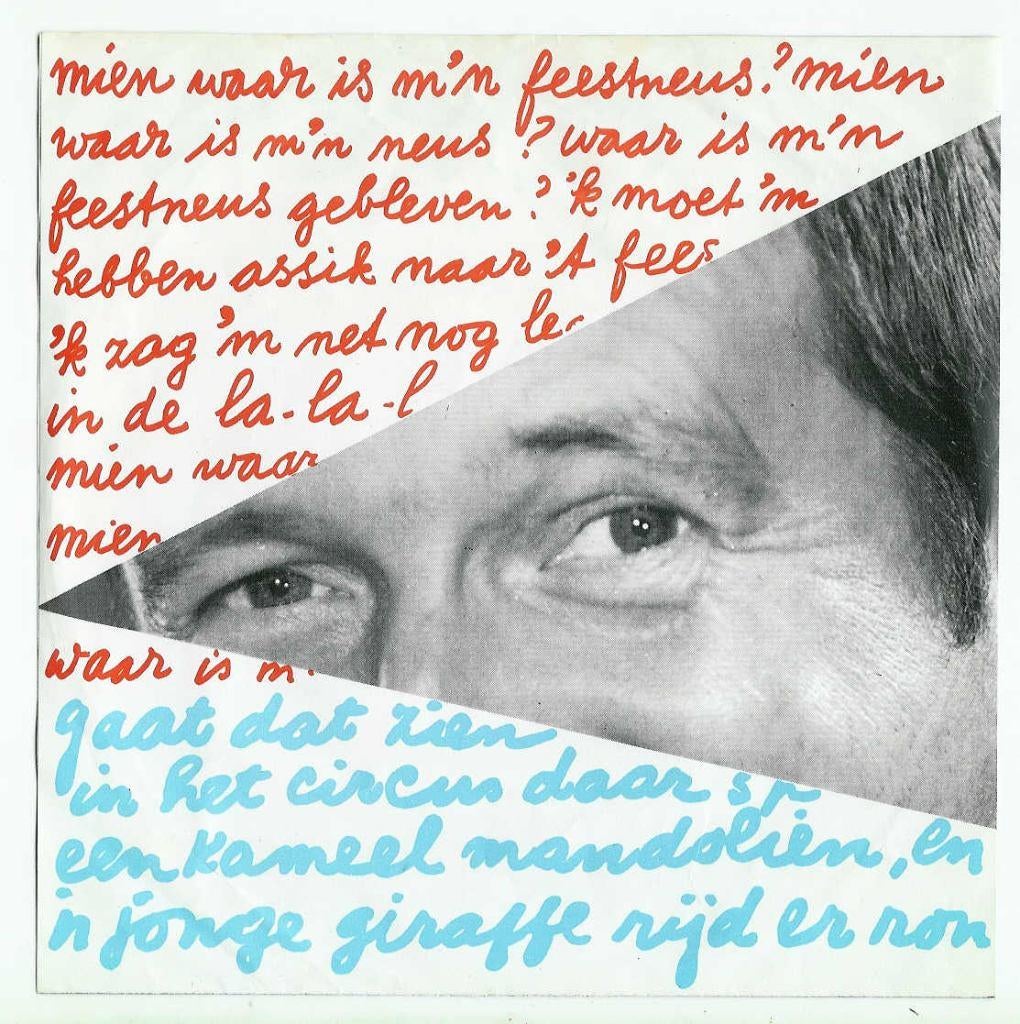 mien waar is m'n feestneus? mien
waar is m'n neus? waar is m'n
feestneus gebleven? 'k moet 'm
hebben assik naar 't fees
'k zag 'm net nog le
in de la-la-l
mien waar
mien
waar is m'
gaat dat zien
in het circus daar sp
een kameel mandolien, en
'n jonge giraffe rijd er ron